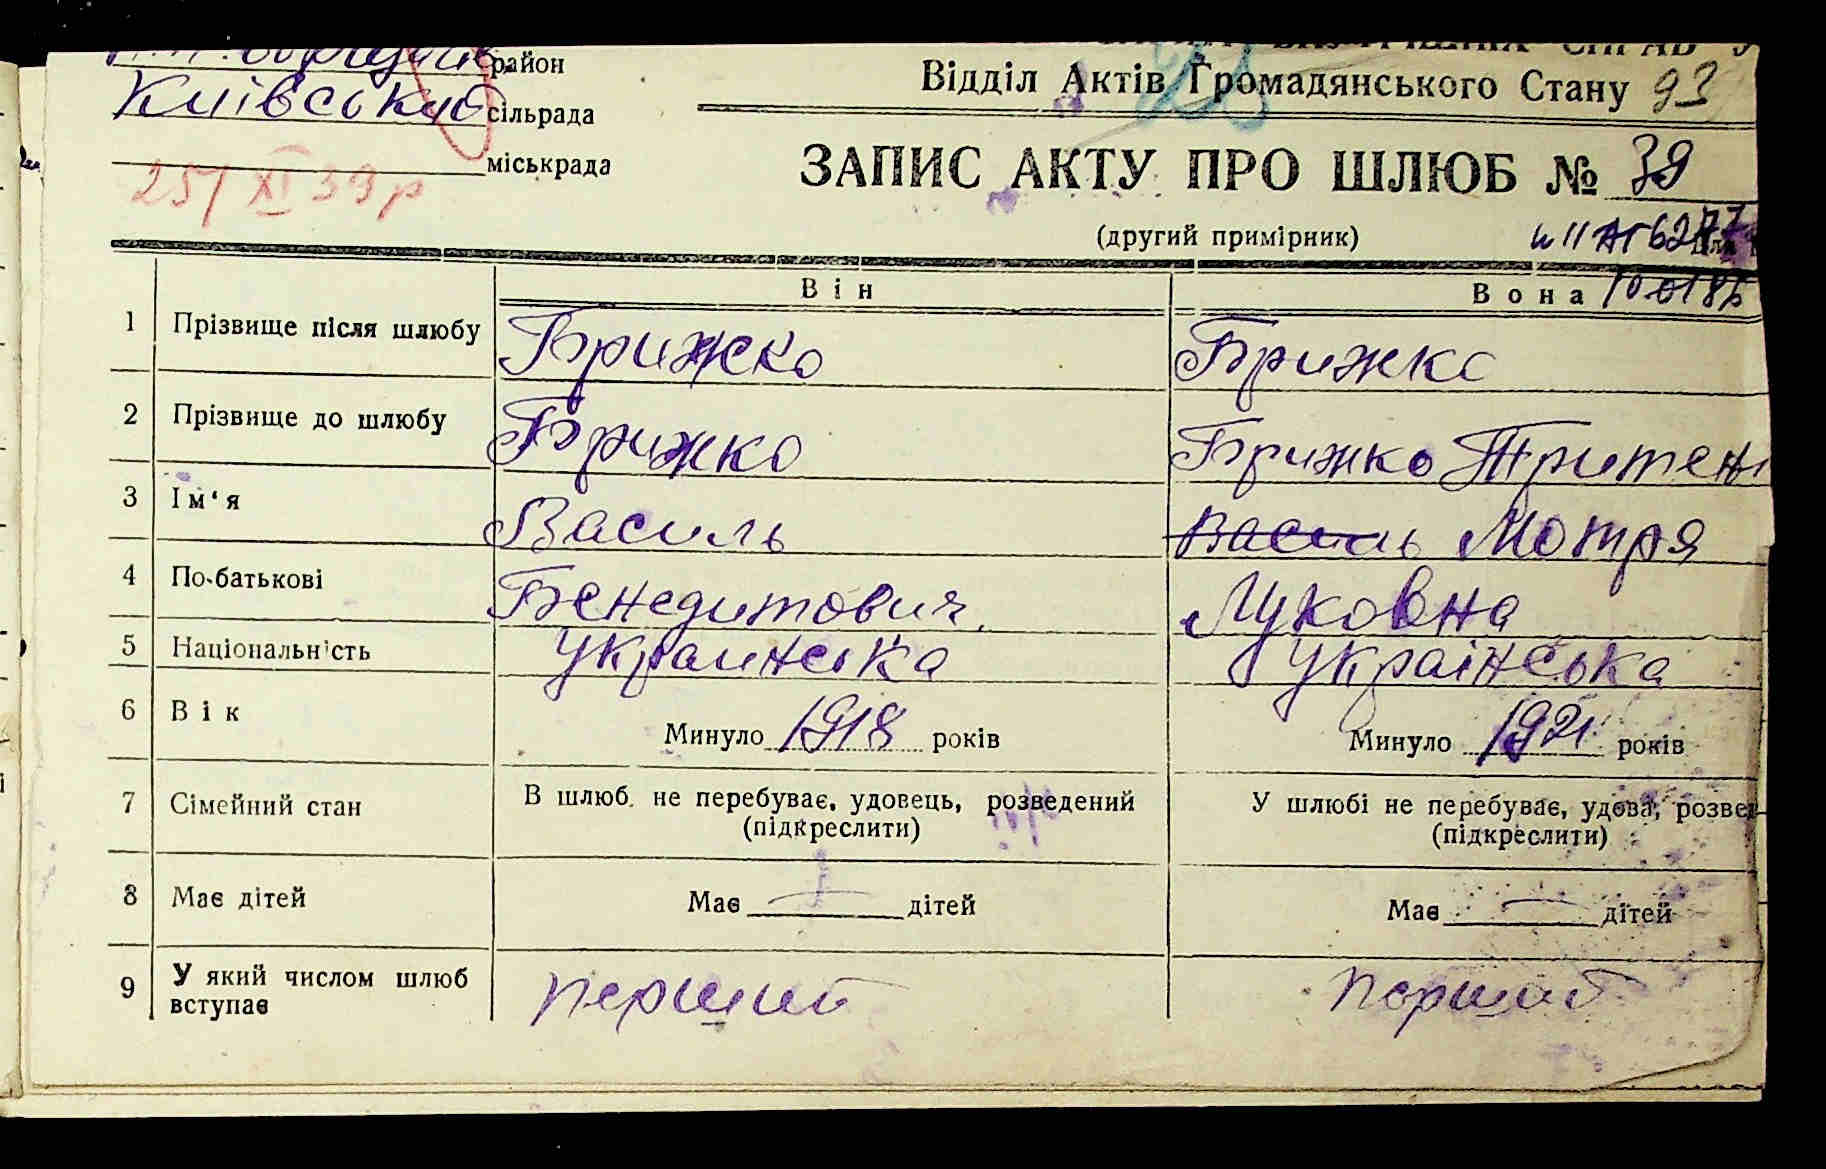 район
Відділ Актів Громадянського Стану 93
Київський сільрада
міськрада
25/XI 39 р
ЗАПИС АКТУ ПРО ШЛЮБ № 39
(другий примірник)
Він
Вона
1 Прізвище після шлюбу Брижко Брижко
2 Прізвище до шлюбу Брижко Брижко
3 Ім'я Василь Василь Мотря
4 По-батькові Бенедитович Луковна
5 Національність Українська Українська
6 Вік Минуло 1918 років Минуло 1921 років
7 Сімейний стан В шлюб. не перебуває, удовець, розведений У шлюбі не перебуває, удова, розвед
(підкреслити) (підкреслити)
8 Має дітей Має дітей Має дітей
9 У який числом шлюб
вступає перший перший